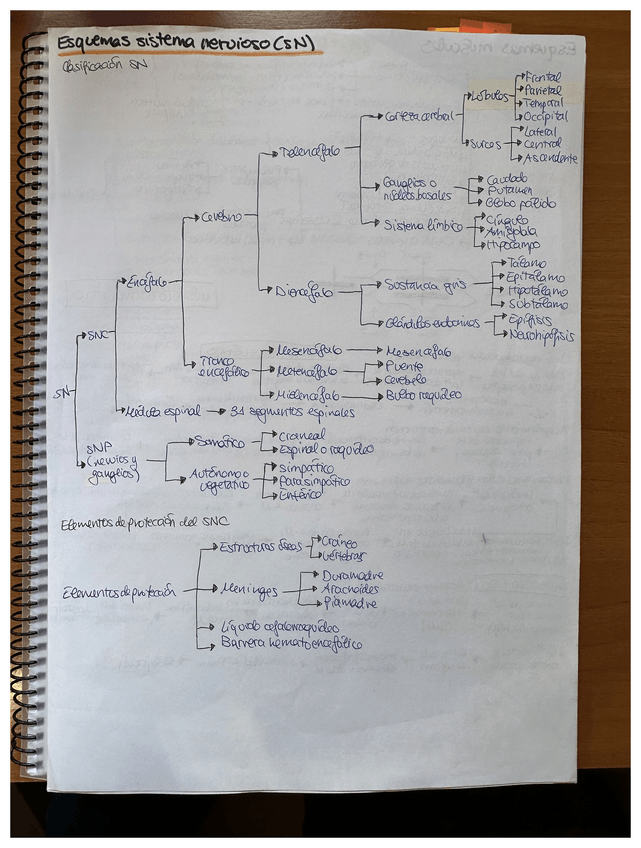 Esquemas sistema nervioso (SN)
Clasificación SN
Frontal
Lóbulos
Parietal
Temporal
Corteza cerebral
Occipital
Lateral
Surcos
Central
Telencéfalo
Ascendente
Ganglios o
núcleos basales
Caudado
Putamen
Globo pálido
Cerebro
Sistema límbico
Cíngulo
Amígdala
Hipocampo
Tálamo
Encéfalo
Sustancia gris
Epitálamo
Diencéfalo
Hipotálamo
Subtálamo
Glándulas endocrinas
Epífisis
Neurohipófisis
SNC
Mesencéfalo
Mesencéfalo
Tronco
encefálico
Metencéfalo
Puente
Cerebelo
SN
Mielencéfalo
Bulbo raquídeo
Médula espinal
31 segmentos espinales
SNP
(nervios y
ganglios)
Somático
Craneal
Espinal o raquídeo
Autónomo o
vegetativo
Simpático
Parasimpático
Entérico
Elementos de protección del SNC
Estructuras óseas
Cráneo
Vértebras
Elementos de protección
Meninges
Duramadre
Aracnoides
Piamadre
Líquido cefalorraquídeo
Barrera hematoencefálica